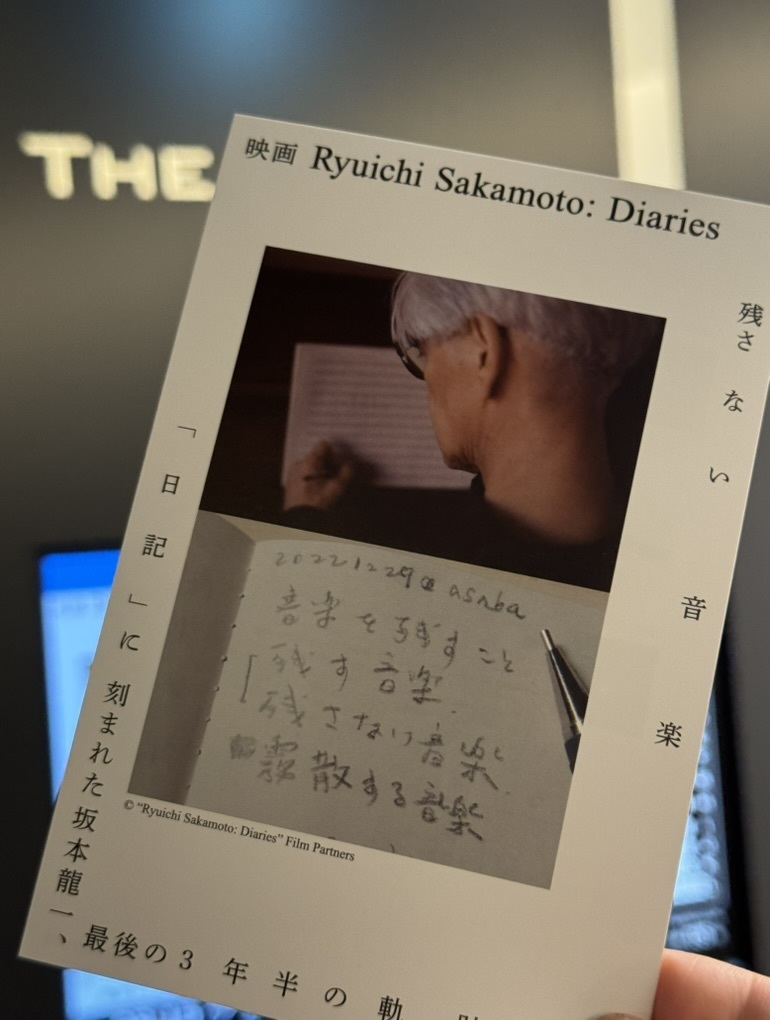 THE
映画 Ryuichi Sakamoto: Diaries
残さない音楽
20221229@asaba
音楽を残すこと
残す音楽
残さない音楽
霧散する音楽
© “Ryuichi Sakamoto: Diaries” Film Partners
「日記」に刻まれた坂本龍一、
最後の3年半の軌